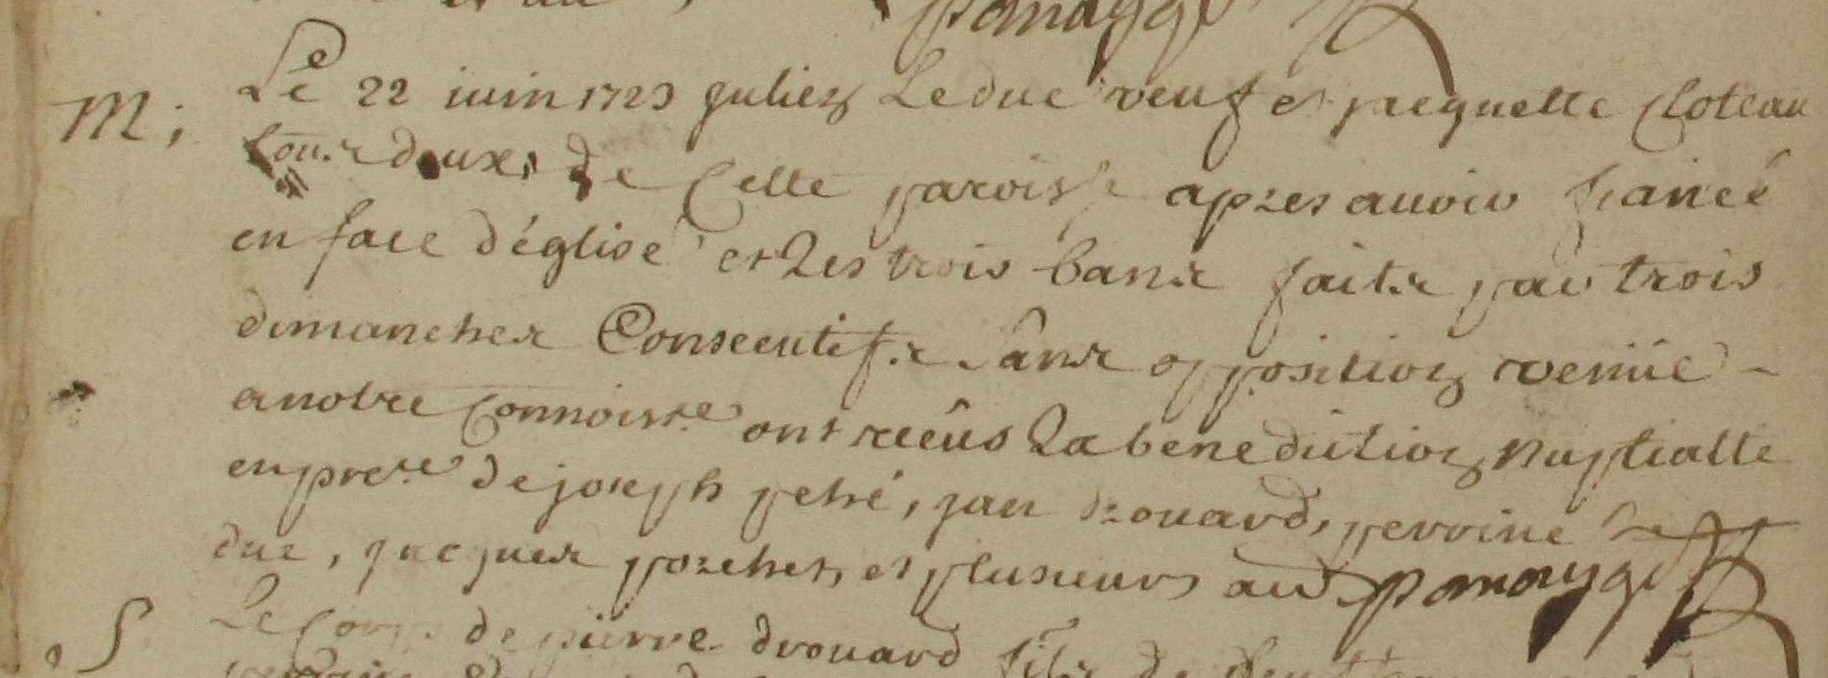 M;
Le 22 iuin 1723 julien Leduc veuf et jacquette Cloteau
tous deux de Cette paroisse apres auoir fiancé
en face d'église et Les trois bans faits par trois
dimanches Consecutifs sans opposition venüe
a notre Connoisce ont receûs La benediction Nuptialle
en prece de joseph petré, jan drouard, perrine Le
duc, jacques porcher, et plusieurs au
S
Le Corps de pierre drouard fils de